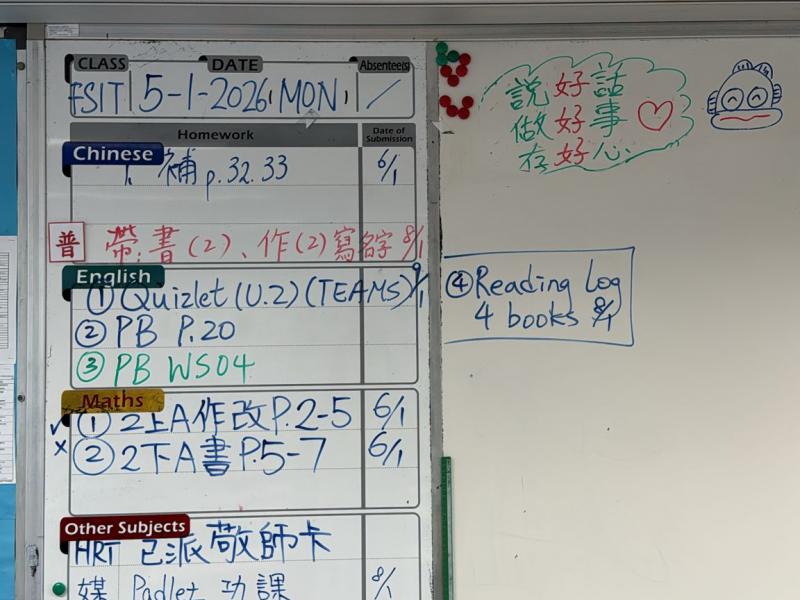 CLASS DATE Absentee(s)
5-1-2026 (MON) /
Homework Date of Submission
Chinese
1. 補 p.32.33 6/1
普 帶:書(2)、作(2)寫名字 8/1
English
① Quizlet (U.2) (TEAMS) 9/1
② PB P.20
③ PB WS04
Maths
✓ ① 2上A作改P.2-5 6/1
x ② 2下A書P.5-7 6/1
Other Subjects
HRT 已派敬師卡
媒 Padlet 功課 8/1
説好話
做好事
存好心
④ Reading Log
4 books 8/1